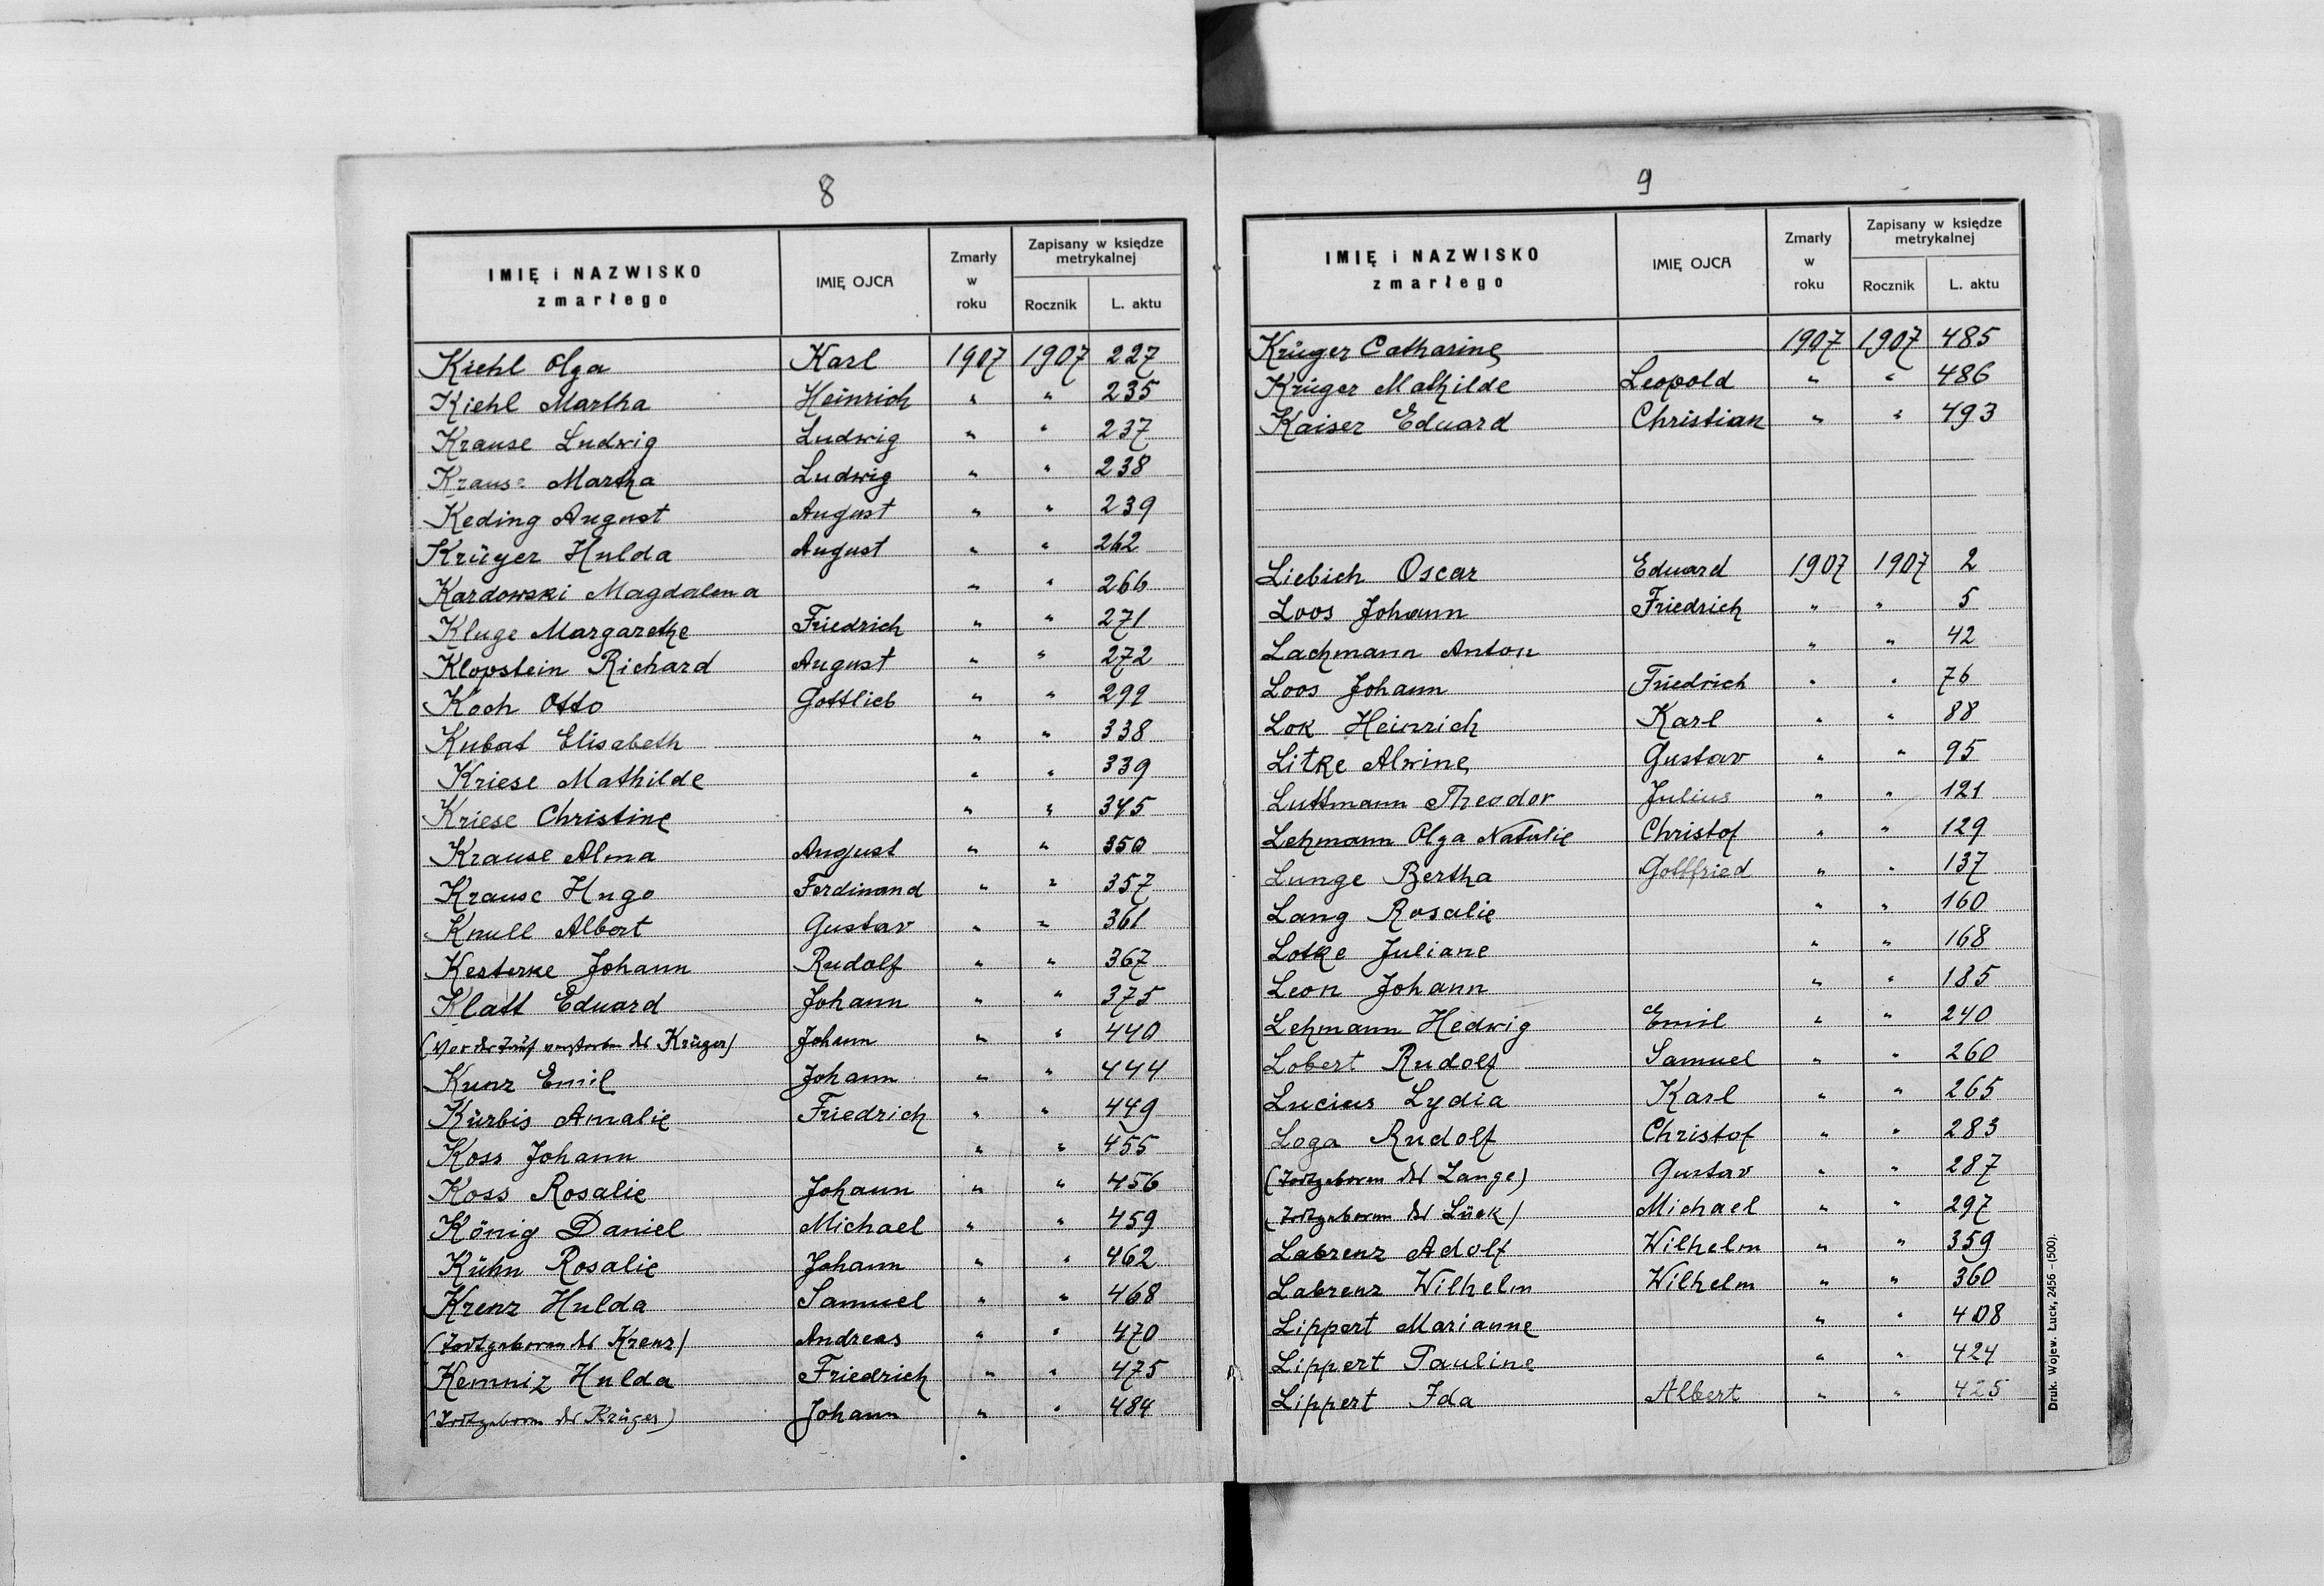 8
IMIĘ i NAZWISKO zmarłego IMIĘ OJCA Zmarły w roku Zapisany w księdze metrykalnej Rocznik L. aktu
Kiehl Olga Karl 1907 1907 227
Kiehl Martha Heinrich " " 235
Krause Ludwig Ludwig " " 237
Krause Martha Ludwig " " 238
Keding August August " " 239
Krüger Hulda August " " 262
Kardowski Magdalena " " 266
Kluge Margarethe Friedrich " " 271
Klopstein Richard August " " 272
Koch Otto Gottlieb " " 299
Kubat Elisabeth " " 338
Kriese Mathilde " " 339
Kriese Christine " " 345
Krause Alma August " " 350
Krause Hugo Ferdinand " " 357
Knull Albert Gustav " " 361
Kesterke Johann Rudolf " " 367
Klatt Eduard Johann " " 375
(Vor der Tauf verstorben des Krüger) Johann " " 440
Kunz Emil Johann " " 444
Kürbis Amalie Friedrich " " 449
Koss Johann " " 455
Koss Rosalie Johann " " 456
König Daniel Michael " " 459
Kühn Rosalie Johann " " 462
Krenz Hulda Samuel " " 468
(Todtgeboren des Krenz) Andreas " " 470
Kemniz Hulda Friedrich " " 475
(Todtgeboren des Krüger) Johann " " 484
9
IMIĘ i NAZWISKO zmarłego IMIĘ OJCA Zmarły w roku Zapisany w księdze metrykalnej Rocznik L. aktu
Krüger Catharine — 1907 1907 485
Krüger Mathilde Leopold " " 486
Kaiser Eduard Christian " " 493
Liebich Oscar Eduard 1907 1907 2
Loos Johann Friedrich " " 5
Lachmann Anton " " 42
Loos Johann Friedrich " " 76
Lok Heinrich Karl " " 88
Litke Alwine Gustav " " 95
Luttmann Theodor Julius " " 121
Lehmann Olga Natalie Christof " " 129
Lunge Bertha Gottfried " " 137
Lang Rosalie " " 160
Lotke Juliane " " 168
Leon Johann " " 185
Lehmann Hedwig Emil " " 240
Lobert Rudolf Samuel " " 260
Lucius Lydia Karl " " 265
Loga Rudolf Christof " " 283
(Todtgeboren des Lange) Gustav " " 287
(Todtgeboren des Lück) Michael " " 297
Labrenz Adolf Wilhelm " " 359
Labrenz Wilhelm Wilhelm " " 360
Lippert Marianne " " 408
Lippert Pauline " " 424
Lippert Ida Albert " " 425
Druk. Wojew. Łuck, 2456 - (500).